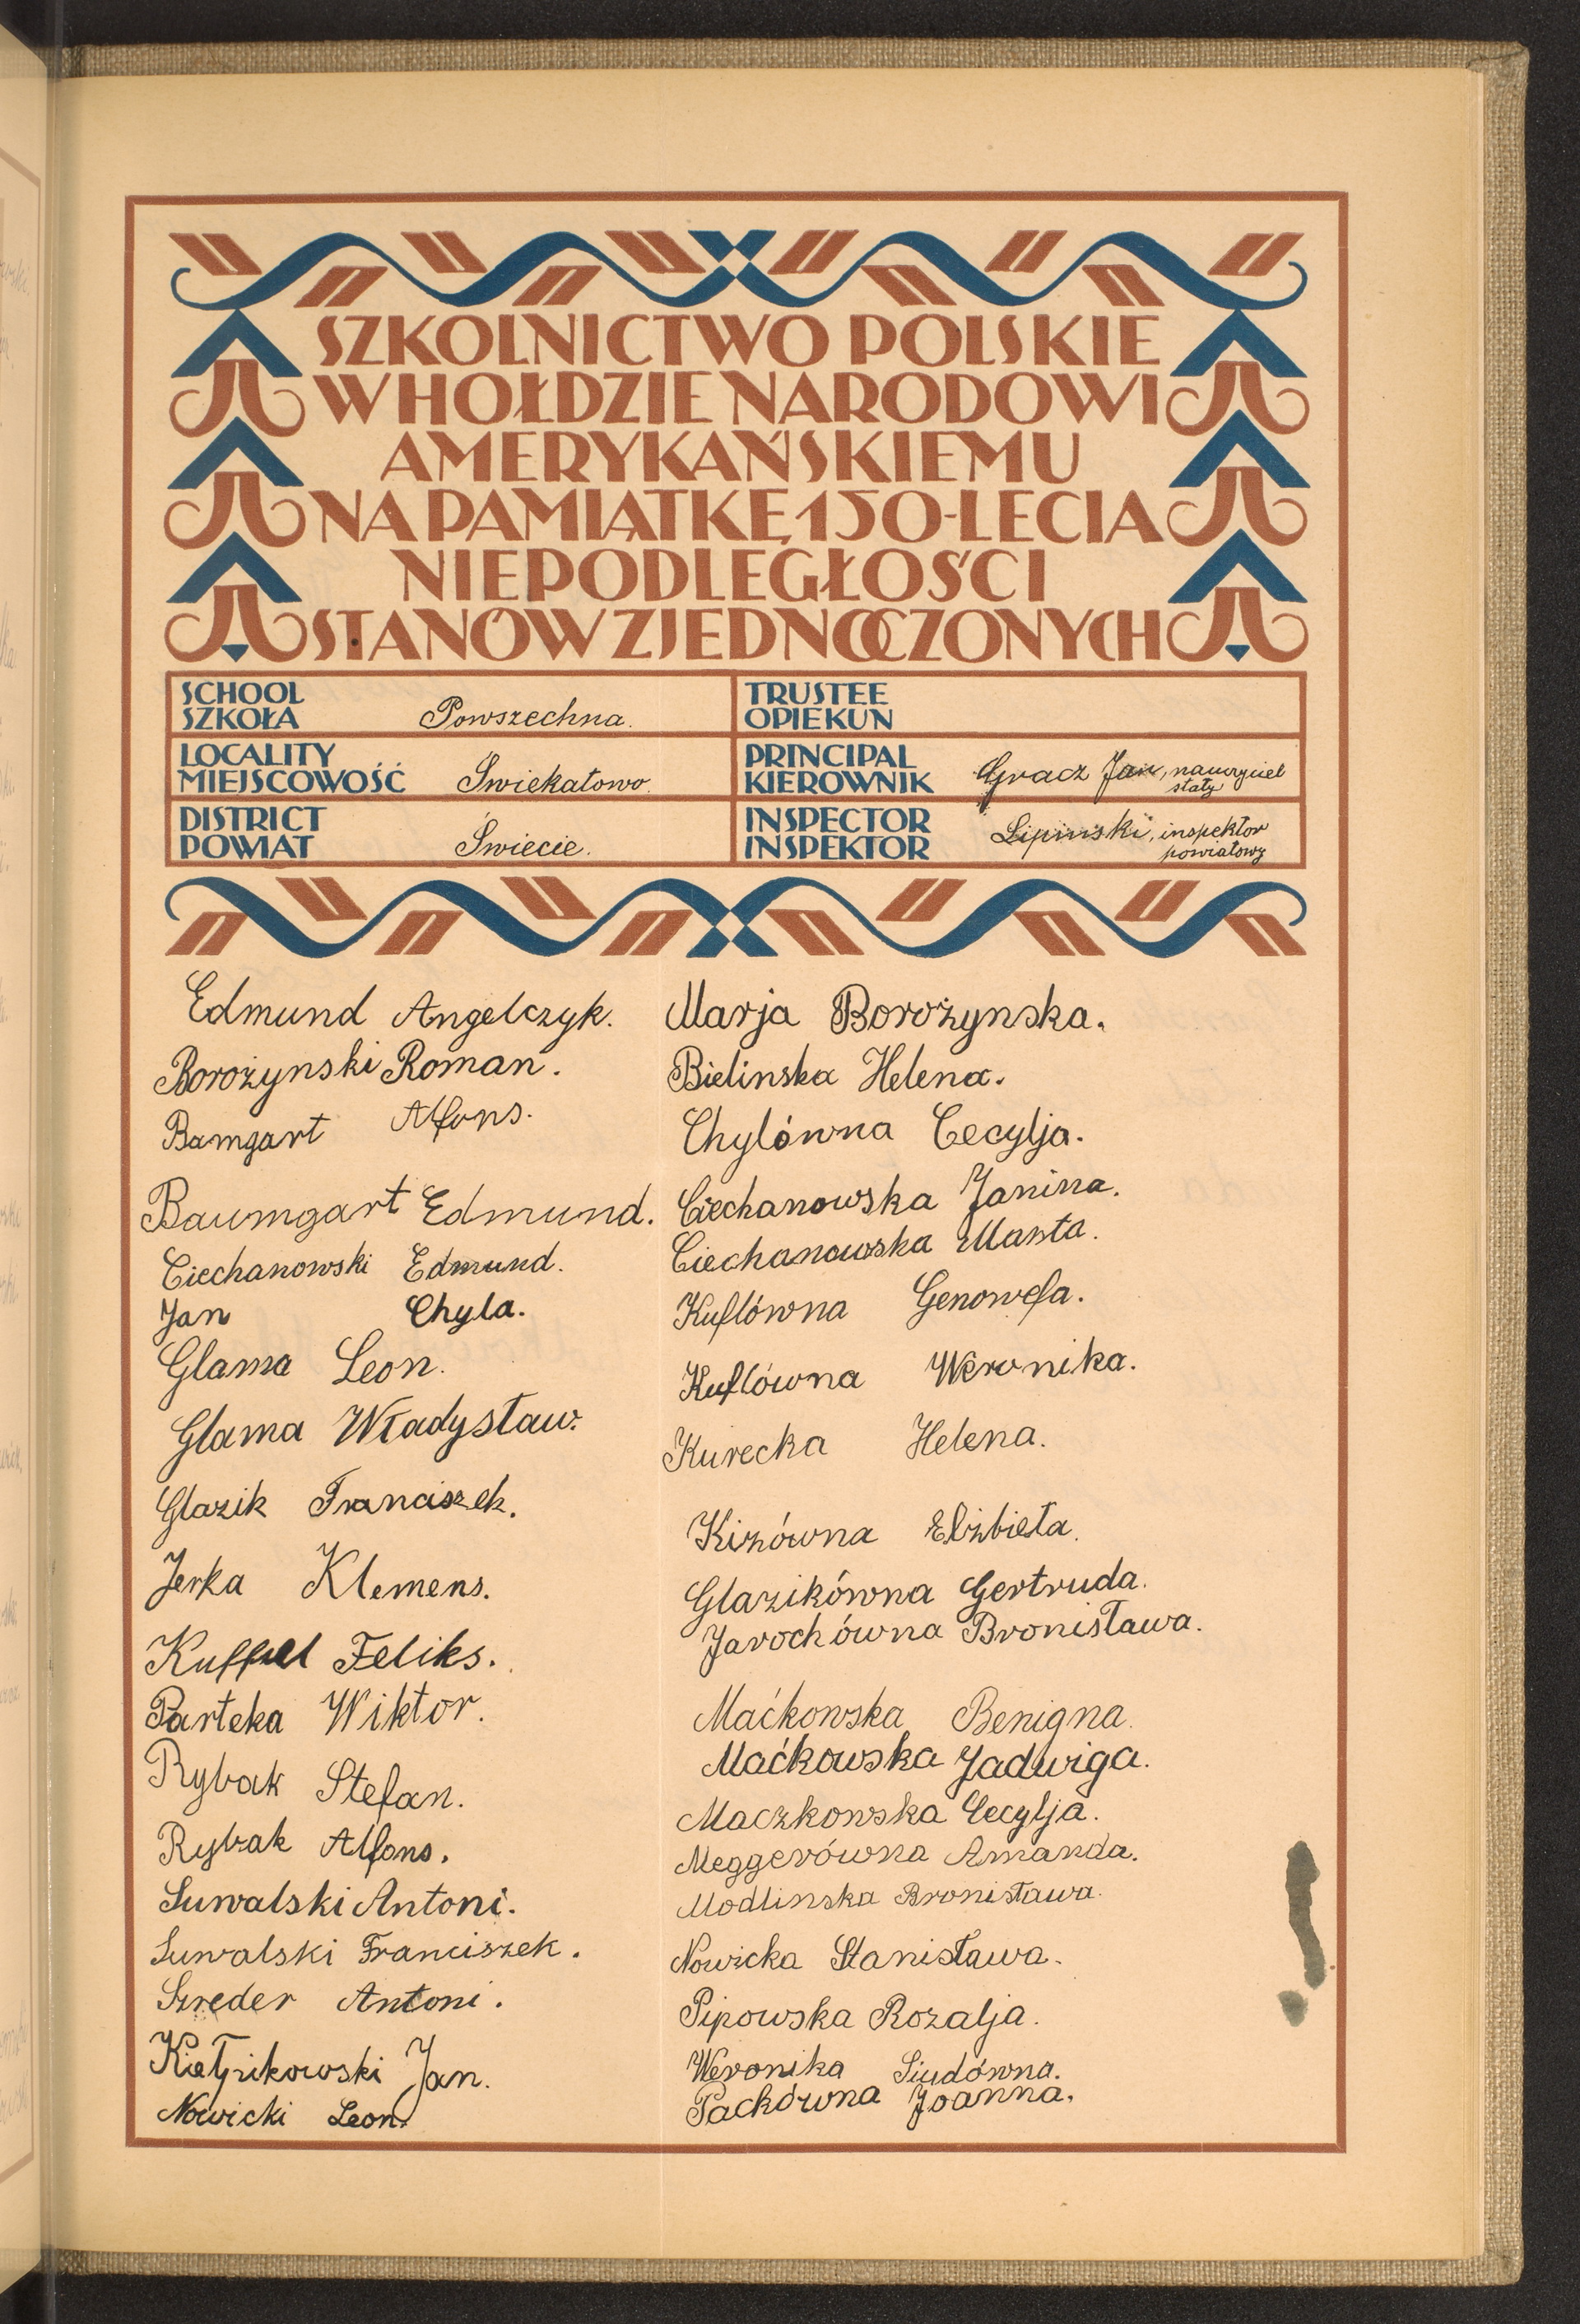 SZKOLNICTWO POLSKIE
W HOŁDZIE NARODOWI
AMERYKAŃSKIEMU
NA PAMIĄTKĘ 150-LECIA
NIEPODLEGŁOŚCI
STANÓW ZJEDNOCZONYCH
SCHOOL
SZKOŁA Powszechna.
TRUSTEE
OPIEKUN
LOCALITY
MIEJSCOWOŚĆ Świekatowo.
PRINCIPAL
KIEROWNIK Gracz Jan, nauczyciel
stały
DISTRICT
POWIAT Świecie.
INSPECTOR
INSPEKTOR Lipiński, inspektor
powiatowy
Edmund Angelczyk.
Borożynski Roman.
Bamgart Alfons.
Baumgart Edmund.
Ciechanowski Edmund.
Jan Chyla.
Glama Leon.
Glama Władysław.
Glazik Franciszek.
Jerka Klemens.
Kuffel Feliks.
Parteka Wiktor.
Rybak Stefan.
Rybak Alfons.
Suwalski Antoni.
Suwalski Franciszek.
Szreder Antoni.
Jan.
Nowicki Leon.
Marja Borożynska.
Bielinska Helena.
Chylówna Cecylja.
Ciechanowska Janina.
Ciechanowska Marta.
Kuflówna Genowefa.
Kuflówna Weronika.
Kurecka Helena.
Kizówna Elżbieta.
Glazikówna Gertruda.
Jarochówna Bronisława.
Maćkowska Benigna.
Maćkowska Jadwiga.
Maczkowska Cecylja.
Meggerówna Amanda.
Modlinska Bronisława.
Nowicka Stanisława.
Pipowska Rozalja.
Weronika Siudówna.
Packówna Joanna.